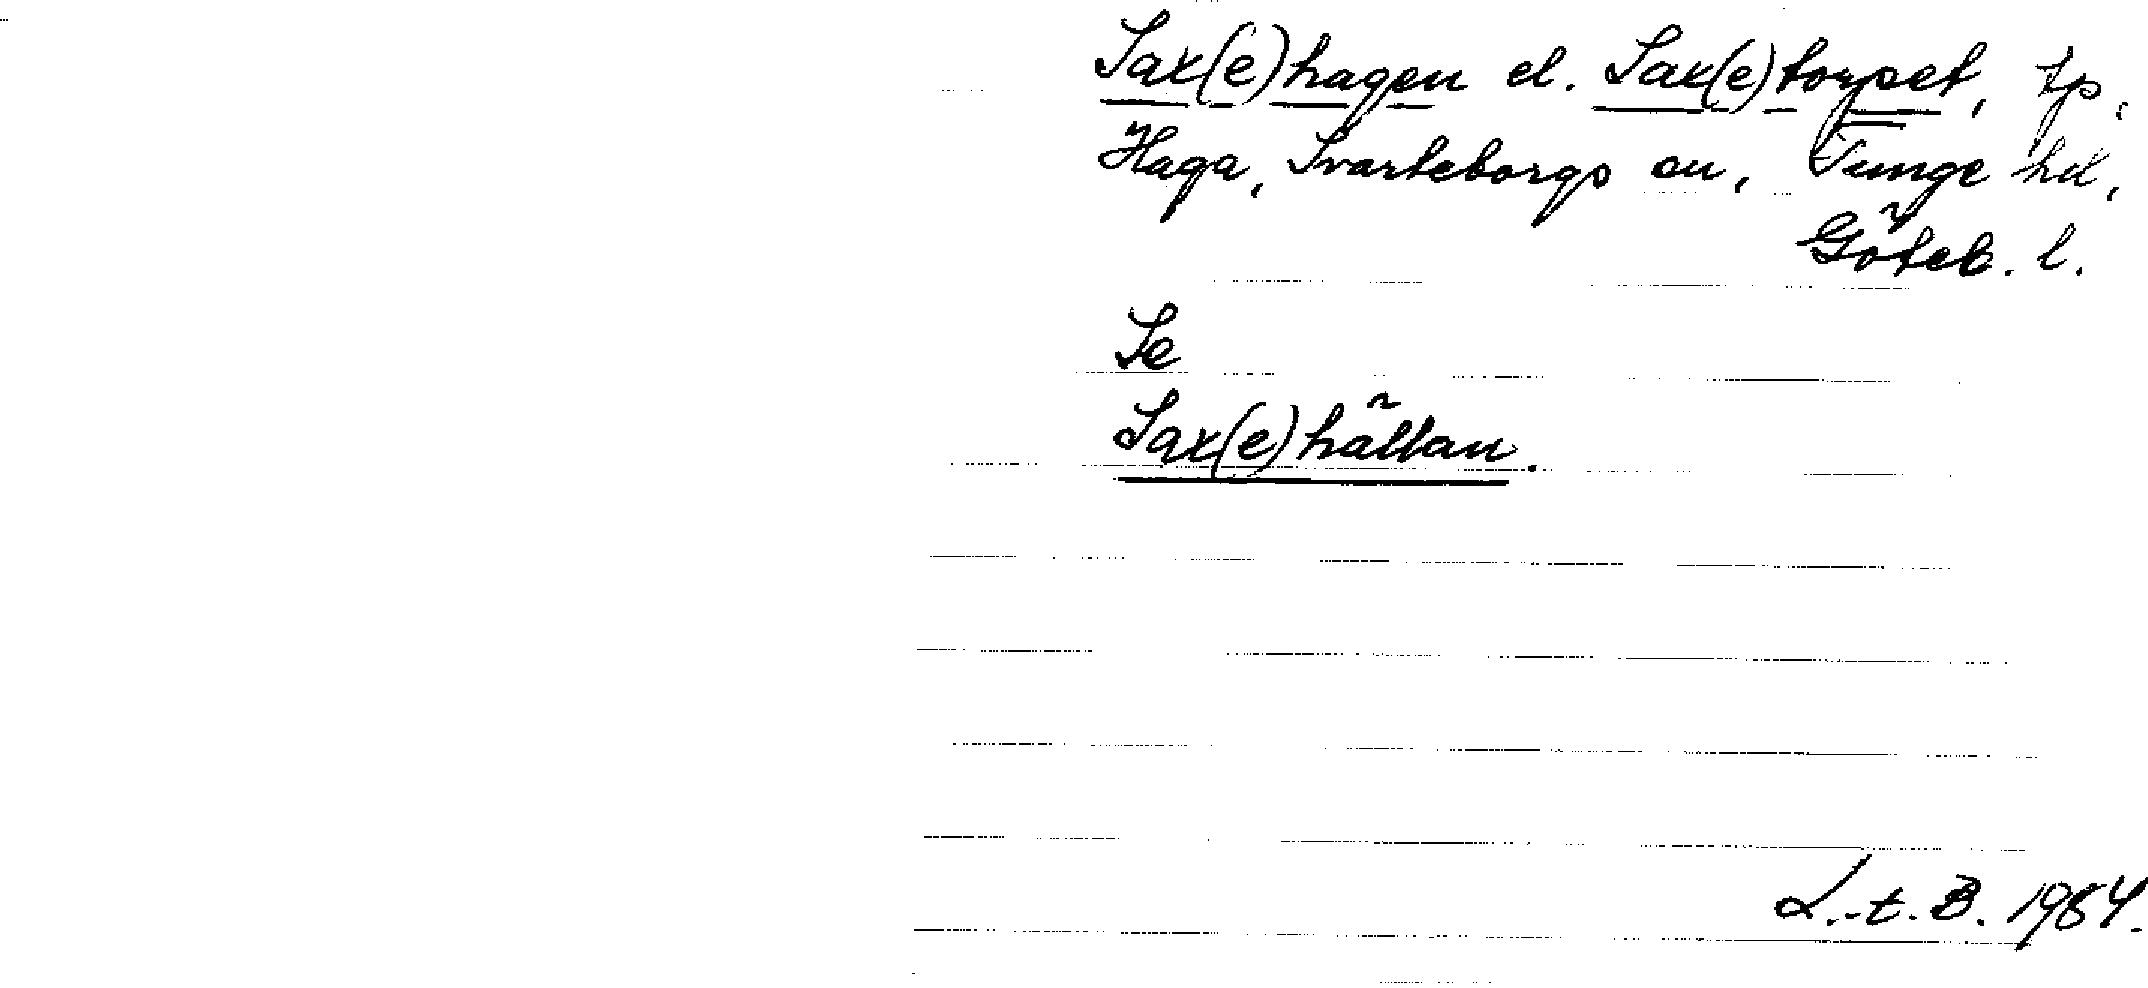 Sax(e)hagen el. Sax(e)torpet, tp,
Haga, Svarteborgs sn, Tunge hd,
Göteb. l.
Se
Sax(e)hällan.
L.-t. B. 1984.